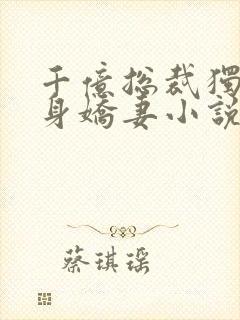 千億總裁獨
身嬌妻小說
蔡琪瑶